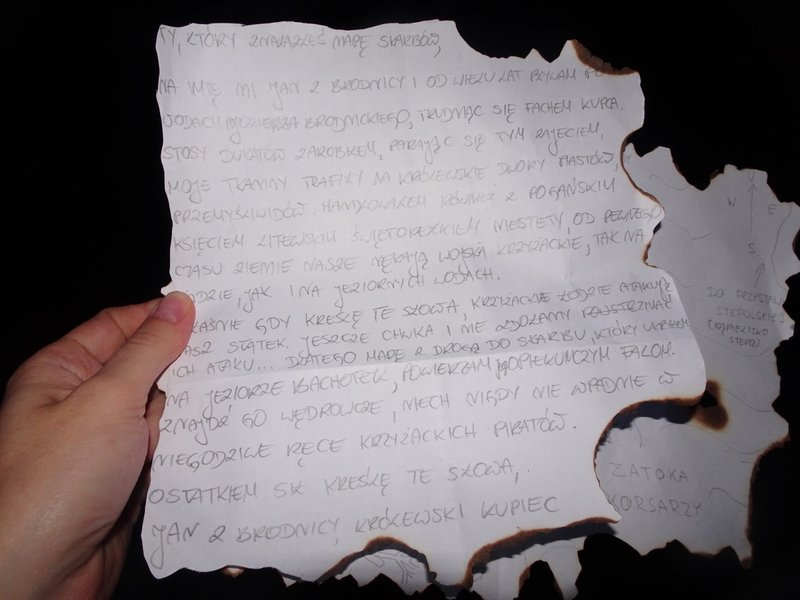 TY, KTÓRY ZNALAZŁEŚ MAPĘ SKARBÓW,
NA IMIĘ MI JAN Z BRODNICY I OD WIELU LAT PŁYWAM PO
WODACH POJEZIERZA BRODNICKIEGO, TRUDNIĄC SIĘ FACHEM KUPCA.
STOSY DUKATÓW ZAROBIŁEM, PARAJĄC SIĘ TYM ZAJĘCIEM,
MOJE TKANINY TRAFIŁY NA KRÓLEWSKIE DWORY PIASTÓW,
PRZEMYŚLIDÓW. HANDLOWAŁEM RÓWNIEŻ Z POGAŃSKIM
KSIĘCIEM LITEWSKIM ŚWIĘTOPEŁKIEM. NIESTETY, OD PEWNEGO
CZASU ZIEMIE NASZE NĘKAJĄ WOJSKA KRZYŻACKIE, TAK NA
LĄDZIE, JAK I NA JEZIORNYCH WODACH.
WŁAŚNIE GDY KREŚLĘ TE SŁOWA, KRZYŻACKIE ŁODZIE ATAKUJĄ
NASZ STATEK. JESZCZE CHWILA I NIE ZDOŁAMY POWSTRZYMAĆ
ICH ATAKU... DLATEGO MAPĘ Z DROGĄ DO SKARBU, KTÓRY UKRYŁEM
NA JEZIORZE BACHOTEK, POWIERZAM JĄ OPIEKUŃCZYM FALOM.
ZNAJDŹ GO WĘDROWCZE, NIECH NIGDY NIE WPADNIE W
NIEGODZIWE RĘCE KRZYŻACKICH PIRATÓW.
OSTATKIEM SIŁ KREŚLĘ TE SŁOWA,
JAN Z BRODNICY, KRÓLEWSKI KUPIEC
N
W E
S
DO PRZYSTANI
STEPOLSKIEJ
(KĄPIELISKO
STEPZ)
ZATOKA
KORSARZY